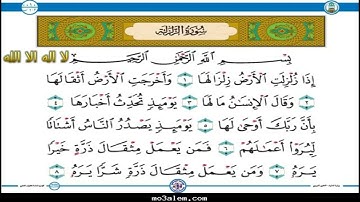 سورة الزلزلة
لا إله الا الله
بِسْمِ اللَّهِ الرَّحْمَٰنِ الرَّحِيمِ
إِذَا زُلْزِلَتِ الْأَرْضُ زِلْزَالَهَا ١ وَأَخْرَجَتِ الْأَرْضُ أَثْقَالَهَا
٢ وَقَالَ الْإِنسَٰنُ مَا لَهَا ٣ يَوْمَئِذٍ تُحَدِّثُ أَخْبَارَهَا ٤
بِأَنَّ رَبَّكَ أَوْحَىٰ لَهَا ٥ يَوْمَئِذٍ يَصْدُرُ النَّاسُ أَشْتَاتًا
لِّيُرَوْا أَعْمَٰلَهُمْ ٦ فَمَن يَعْمَلْ مِثْقَالَ ذَرَّةٍ خَيْرًا
يَرَهُ ٧ وَمَن يَعْمَلْ مِثْقَالَ ذَرَّةٍ شَرًّا يَرَهُ ٨
mo3alem.com